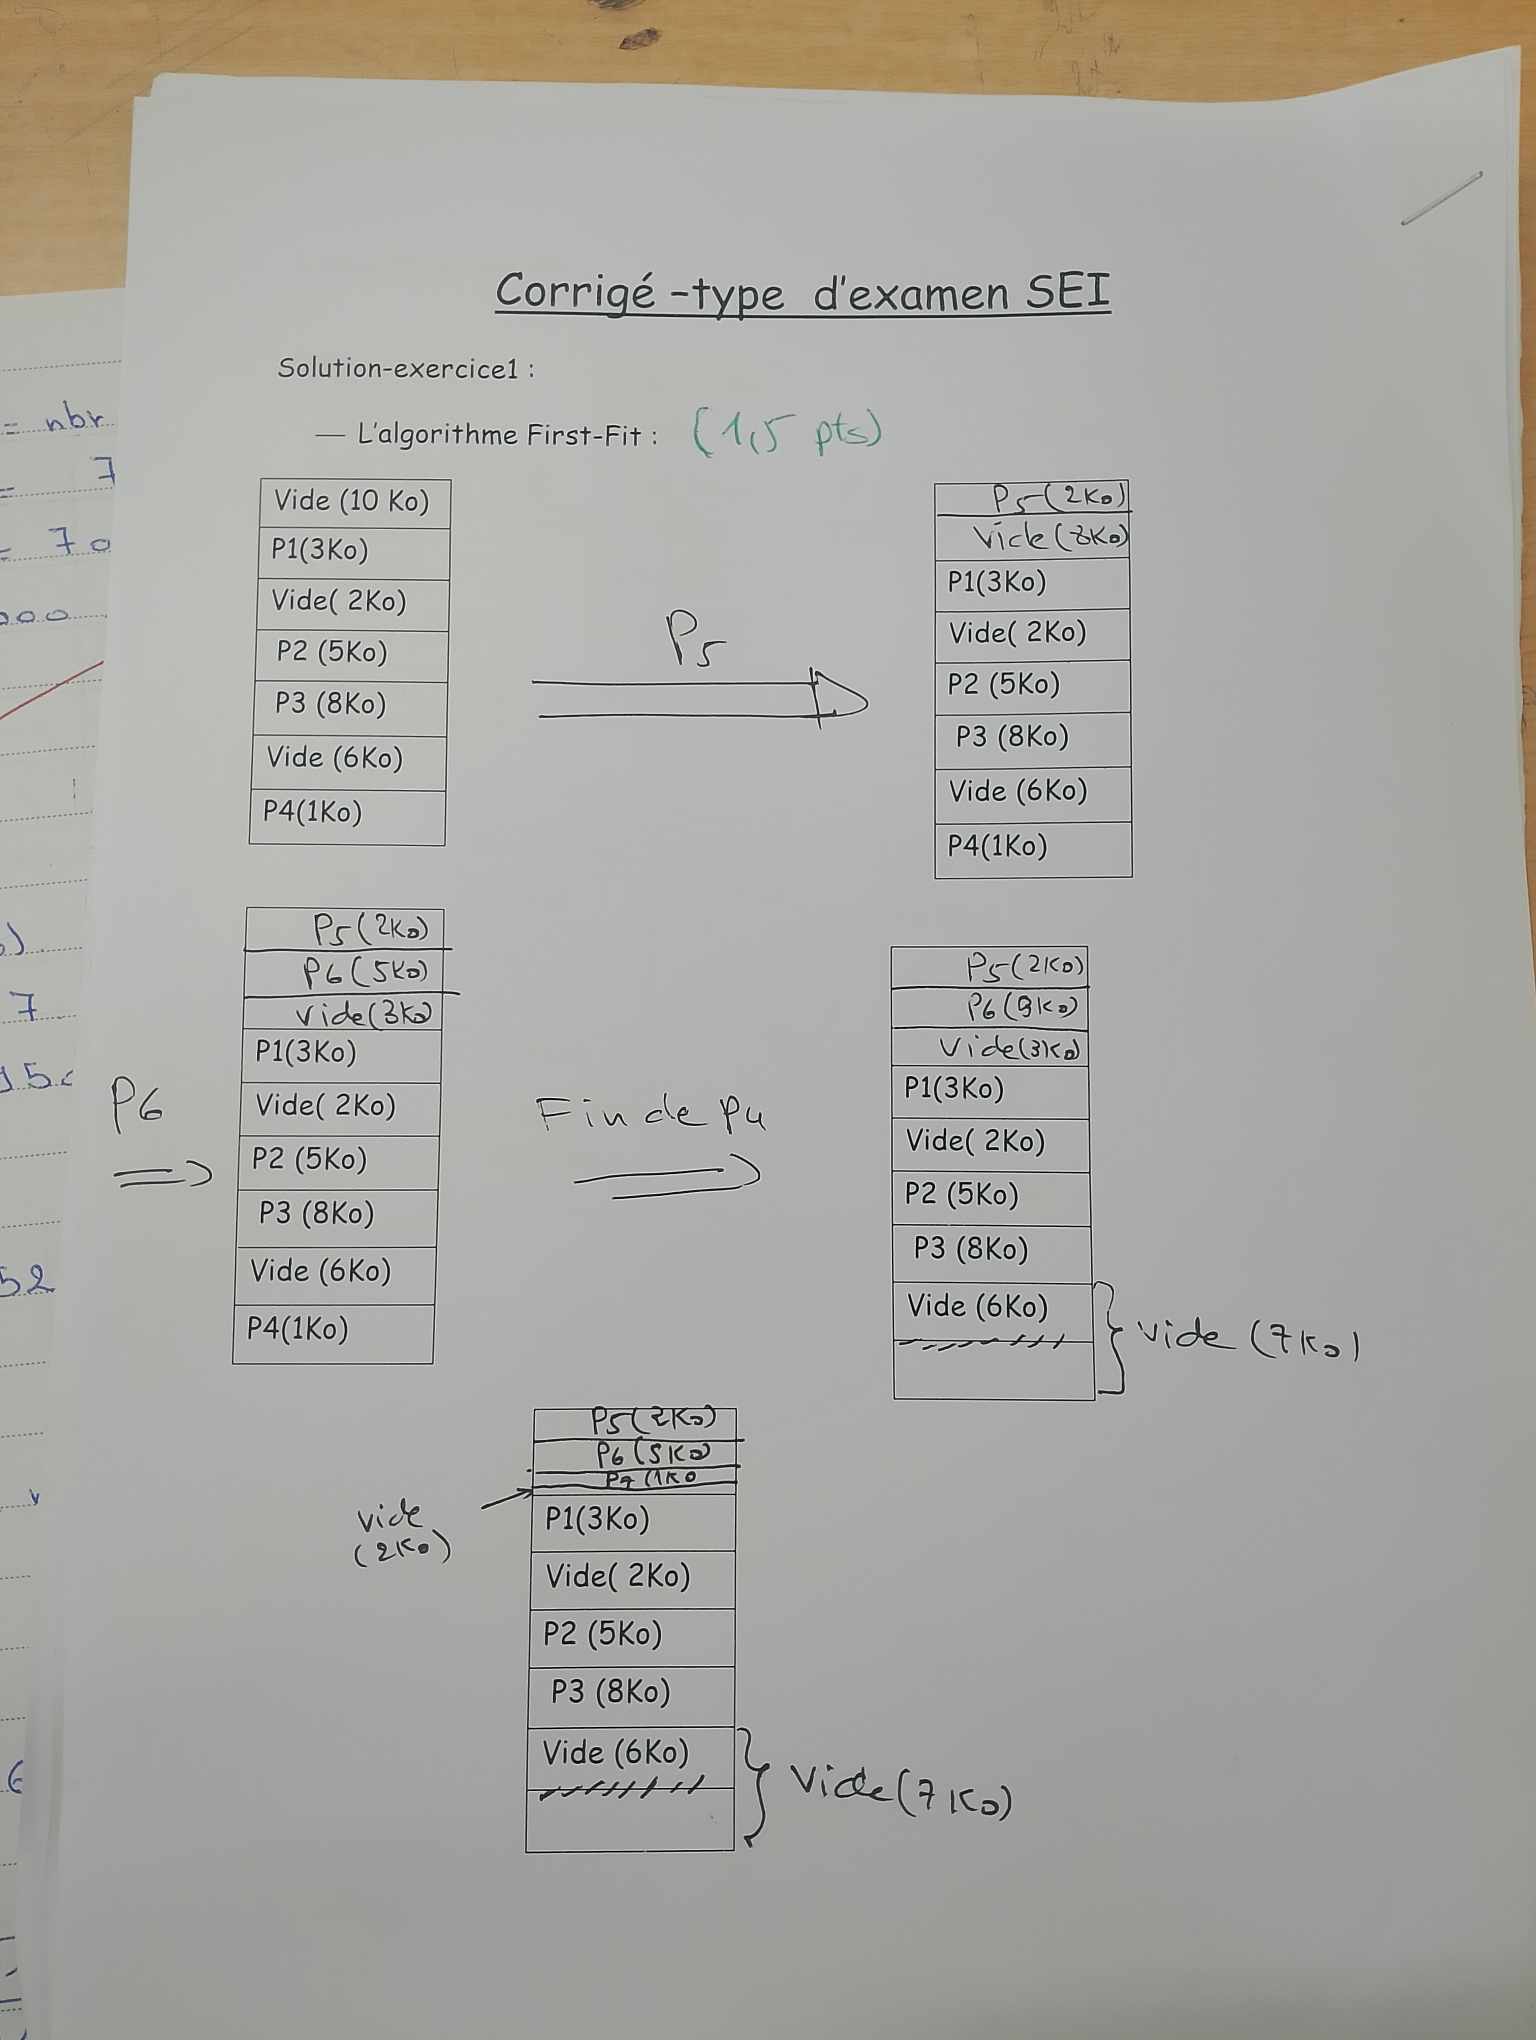 = nbr
= 7
= 70
000
7
52
Corrigé -type d'examen SEI
Solution-exercice1 :
— L'algorithme First-Fit : (1,5 pts)
Vide (10 Ko)
P1(3Ko)
Vide( 2Ko)
P2 (5Ko)
P3 (8Ko)
Vide (6Ko)
P4(1Ko)
P5
P5(2Ko)
Vide(8Ko)
P1(3Ko)
Vide( 2Ko)
P2 (5Ko)
P3 (8Ko)
Vide (6Ko)
P4(1Ko)
P6
P5(2Ko)
P6(5Ko)
Vide(3Ko)
P1(3Ko)
Vide( 2Ko)
P2 (5Ko)
P3 (8Ko)
Vide (6Ko)
P4(1Ko)
Fin de P4
P5(2Ko)
P6(5Ko)
Vide(3Ko)
P1(3Ko)
Vide( 2Ko)
P2 (5Ko)
P3 (8Ko)
Vide (6Ko)
Vide (7Ko)
P5(2Ko)
P6(5Ko)
P7(1Ko
vide
(2Ko)
P1(3Ko)
Vide( 2Ko)
P2 (5Ko)
P3 (8Ko)
Vide (6Ko)
Vide(7Ko)